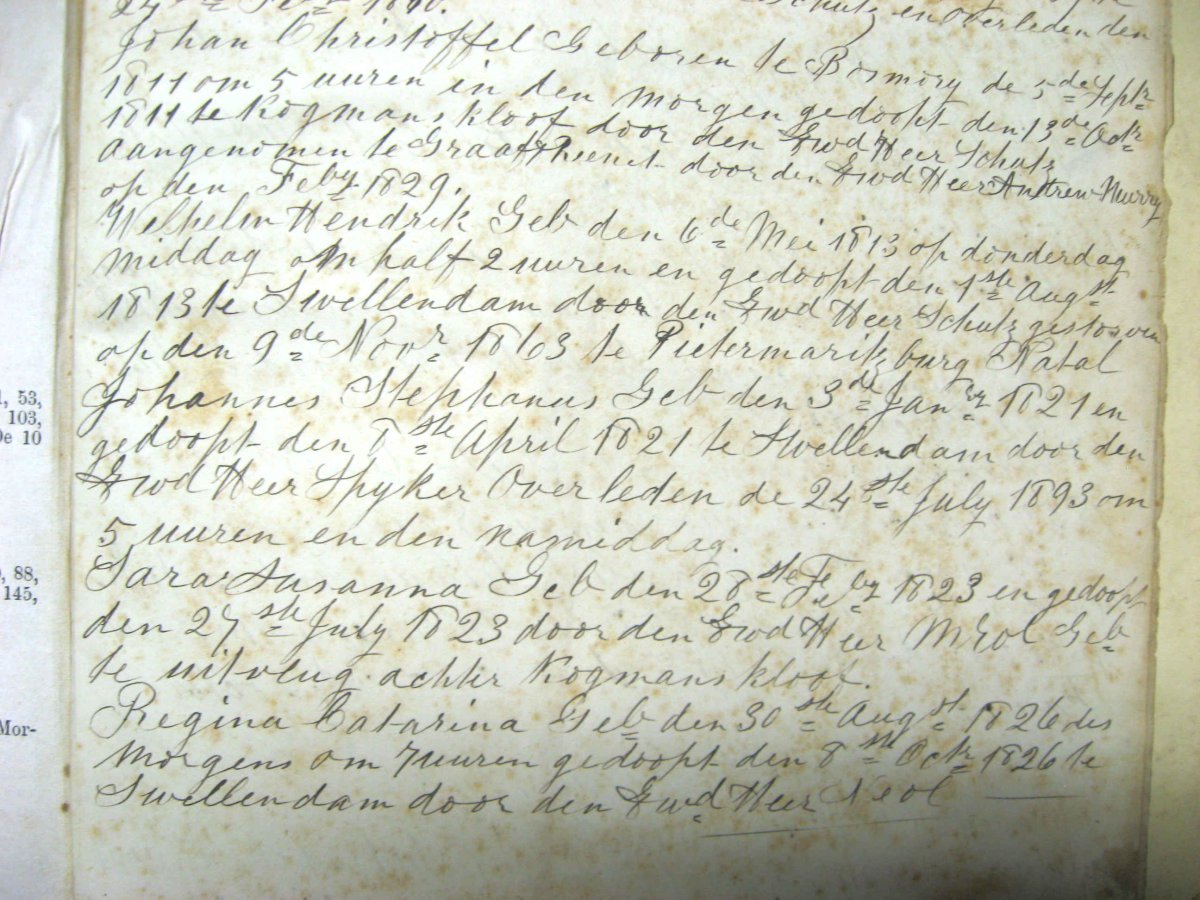 24ste Feby 1810. Schutz en overleden den
Johan Christoffel Geboren te Bosmory de 5de Septr
1811 om 5 uuren in den morgen gedoopt den 13de Octr
1811 te Kogmanskloof door den Ewd Heer Schutz
aangenomen te Graaf Rheenet door den Ewd Heer Andrew Murry
op den Feby 1829.
Wilhelm Hendrik Geb den 6de Mei 1813 op donderdag
middag om half 2 uuren en gedoopt den 1ste Augst
1813 te Swellendam door den Ewd Heer Schutz gestorven
op den 9de Novr 1863 te Pietermaritzburg Natal
Johannes Stephanus Geb den 3de Jany 1821 en
gedoopt den 8ste April 1821 te Swellendam door den
Ewd Heer Spyker Overleden de 24ste July 1893 om
5 uuren en den namiddag.
Sara Susanna Geb den 28ste Feby 1823 en gedoopt
den 27ste July 1823 door den Ewd Heer Geb
te uitvlug achter Kogmanskloof.
Regina Catarina Geb den 30ste Augst 1826 des
morgens om 7 uuren gedoopt den 8ste Octr 1826 te
Swellendam door den Ewd Heer
53,
103,
De 10
88,
145,
Mor-